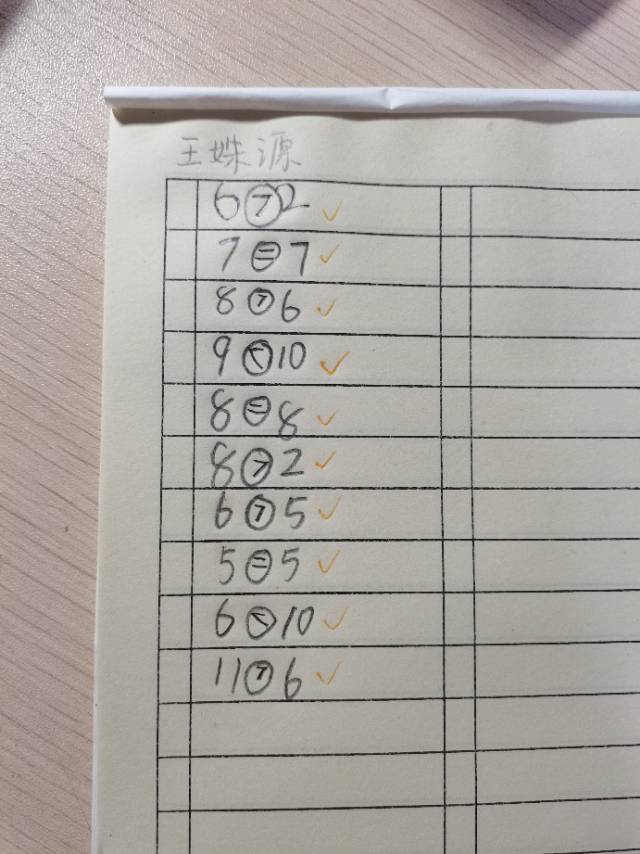 王姝源
6>2 ✓
7=7 ✓
8>6 ✓
9<10 ✓
8=8 ✓
8>2 ✓
6>5 ✓
5=5 ✓
6<10 ✓
11>6 ✓